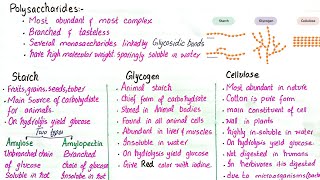 Polysaccharides:-
• Most abundant & most complex
• Branched & tasteless
• Several monosaccharides linked by Glycosidic bonds
• have high molecular weight sparingly soluble in water
Starch
Glycogen
Cellulose
Starch
• Fruits, grains, seeds, tuber
• Main Source of carbohydrate
for animals.
• On hydrolysis yield glucose
Two types
Amylose
Unbranched
chain of
glucose
Soluble in hot
Amylopectin
Branched
chain of
glucose
Insoluble in
Glycogen
• Animal starch
• Chief form of carbohydrate
• Stored in Animal bodies
• Found in all animal cells
• Abundant in liver & muscles
• Insoluble in water
• On hydrolysis yield glucose
• Give Red color with iodine.
Cellulose
• Most abundant in nature
• Cotton is pure form
• main constituent of cell
wall in plants
• highly in-soluble in water
• On hydrolysis yield glucose
• Not digested in humans
• In herbivores its digested
due to microorganisms